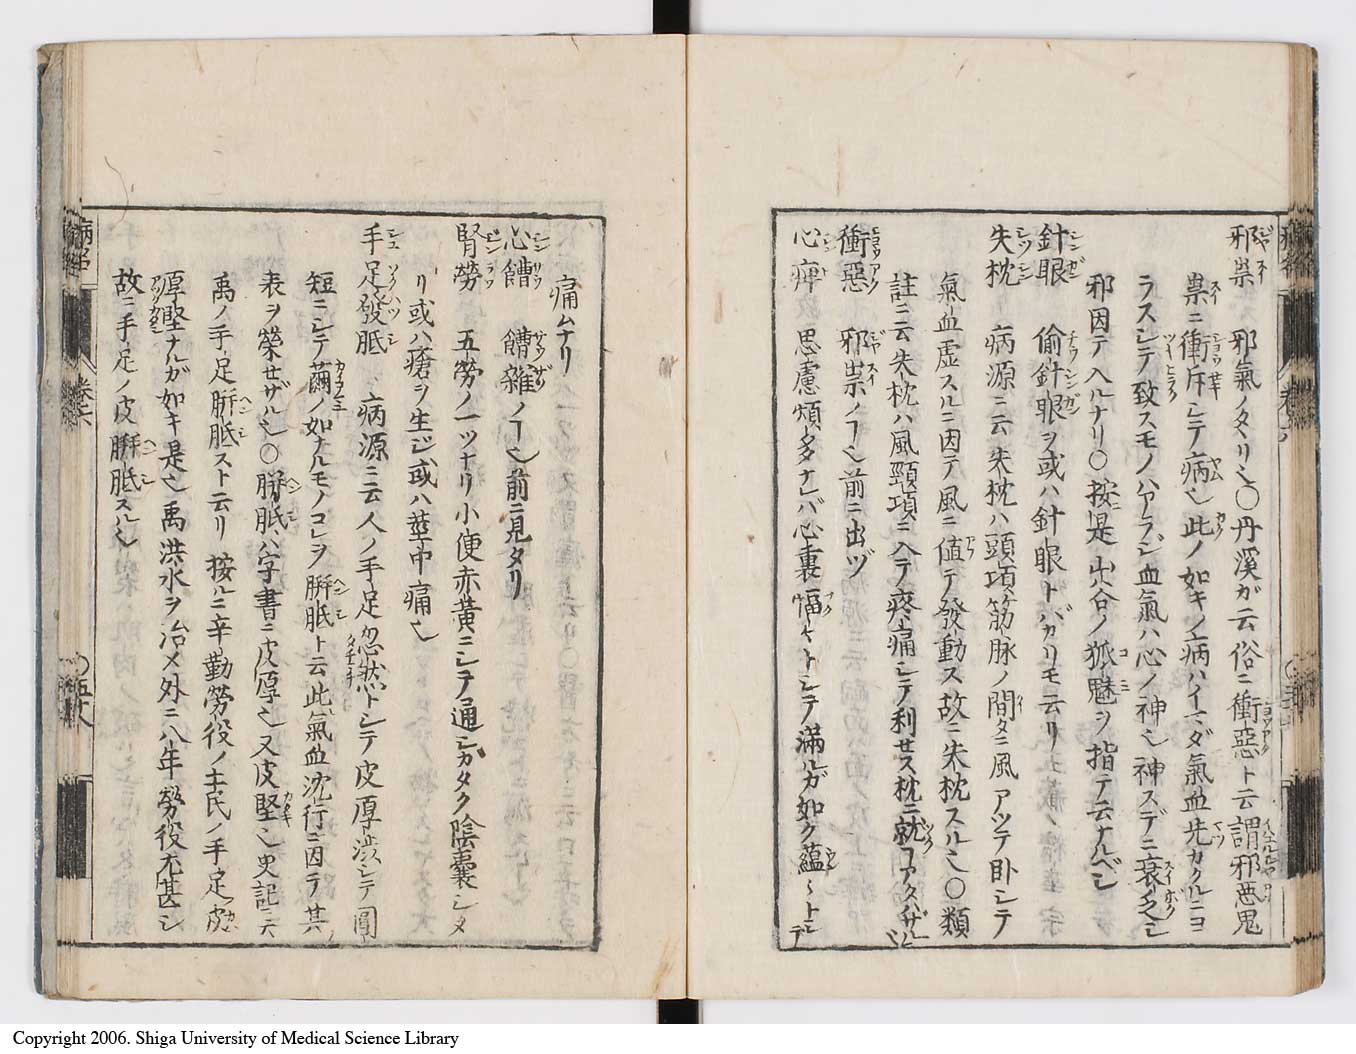 邪祟 邪氣ノタヽリ也〇丹溪ガ云俗ニ衝惡ト云謂邪惡鬼
祟ニ衝斥シテ病也此ノ如キノ病ハイマダ氣血先カクルニヨ
ラスシテ致スモノハアラジ血氣ハ心ノ神也神スデニ衰乏シ
邪因テ入ルナリ〇按是出合ノ狐魅ヲ指テ云ナルベシ
針眼 偷針眼ヲ或ハ針眼トバカリモ云リ
失枕 病源ニ云失枕ハ頭項筋脉ノ間タニ風アツテ臥シテ
氣血虚スルニ因テ風ニ値テ發動ス故ニ失枕スル也〇類
註ニ云失枕ハ風頸項ニ入テ疼痛シテ利せス枕ニ就コアタハザル也
衝惡 邪祟ノヿ也前ニ出ヅ
心痺 思慮煩多ナレバ心裏愊々トシテ滿ルガ如ク蘊々トシテ
痛ムナリ
心饋 饋雜ノヿ也前ニ見タリ
腎勞 五勞ノ一ツナリ小便赤黃ニシテ通シガタク陰囊シタ
リ或ハ瘡ヲ生ジ或ハ莖中痛也
手足發胝 病源ニ云人ノ手足忽然トシテ皮厚渋シテ圓
短ニシテ繭ノ如ナルモノコレヲ胼胝ト云此氣血沈行ニ因テ其
表ヲ榮せザル也〇胼胝ハ字書ニ皮厚也又皮堅也史記ニ云
禹ノ手足胼胝スト云リ 按ルニ辛勤勞役ノ土民ノ手足皮
厚堅ナルガ如キ是也禹洪水ヲ治メ外ニ八年勞役尤甚シ
故ニ手足ノ皮胼胝スル也
卷六
〇五十八
Copyright 2006. Shiga University of Medical Science Library